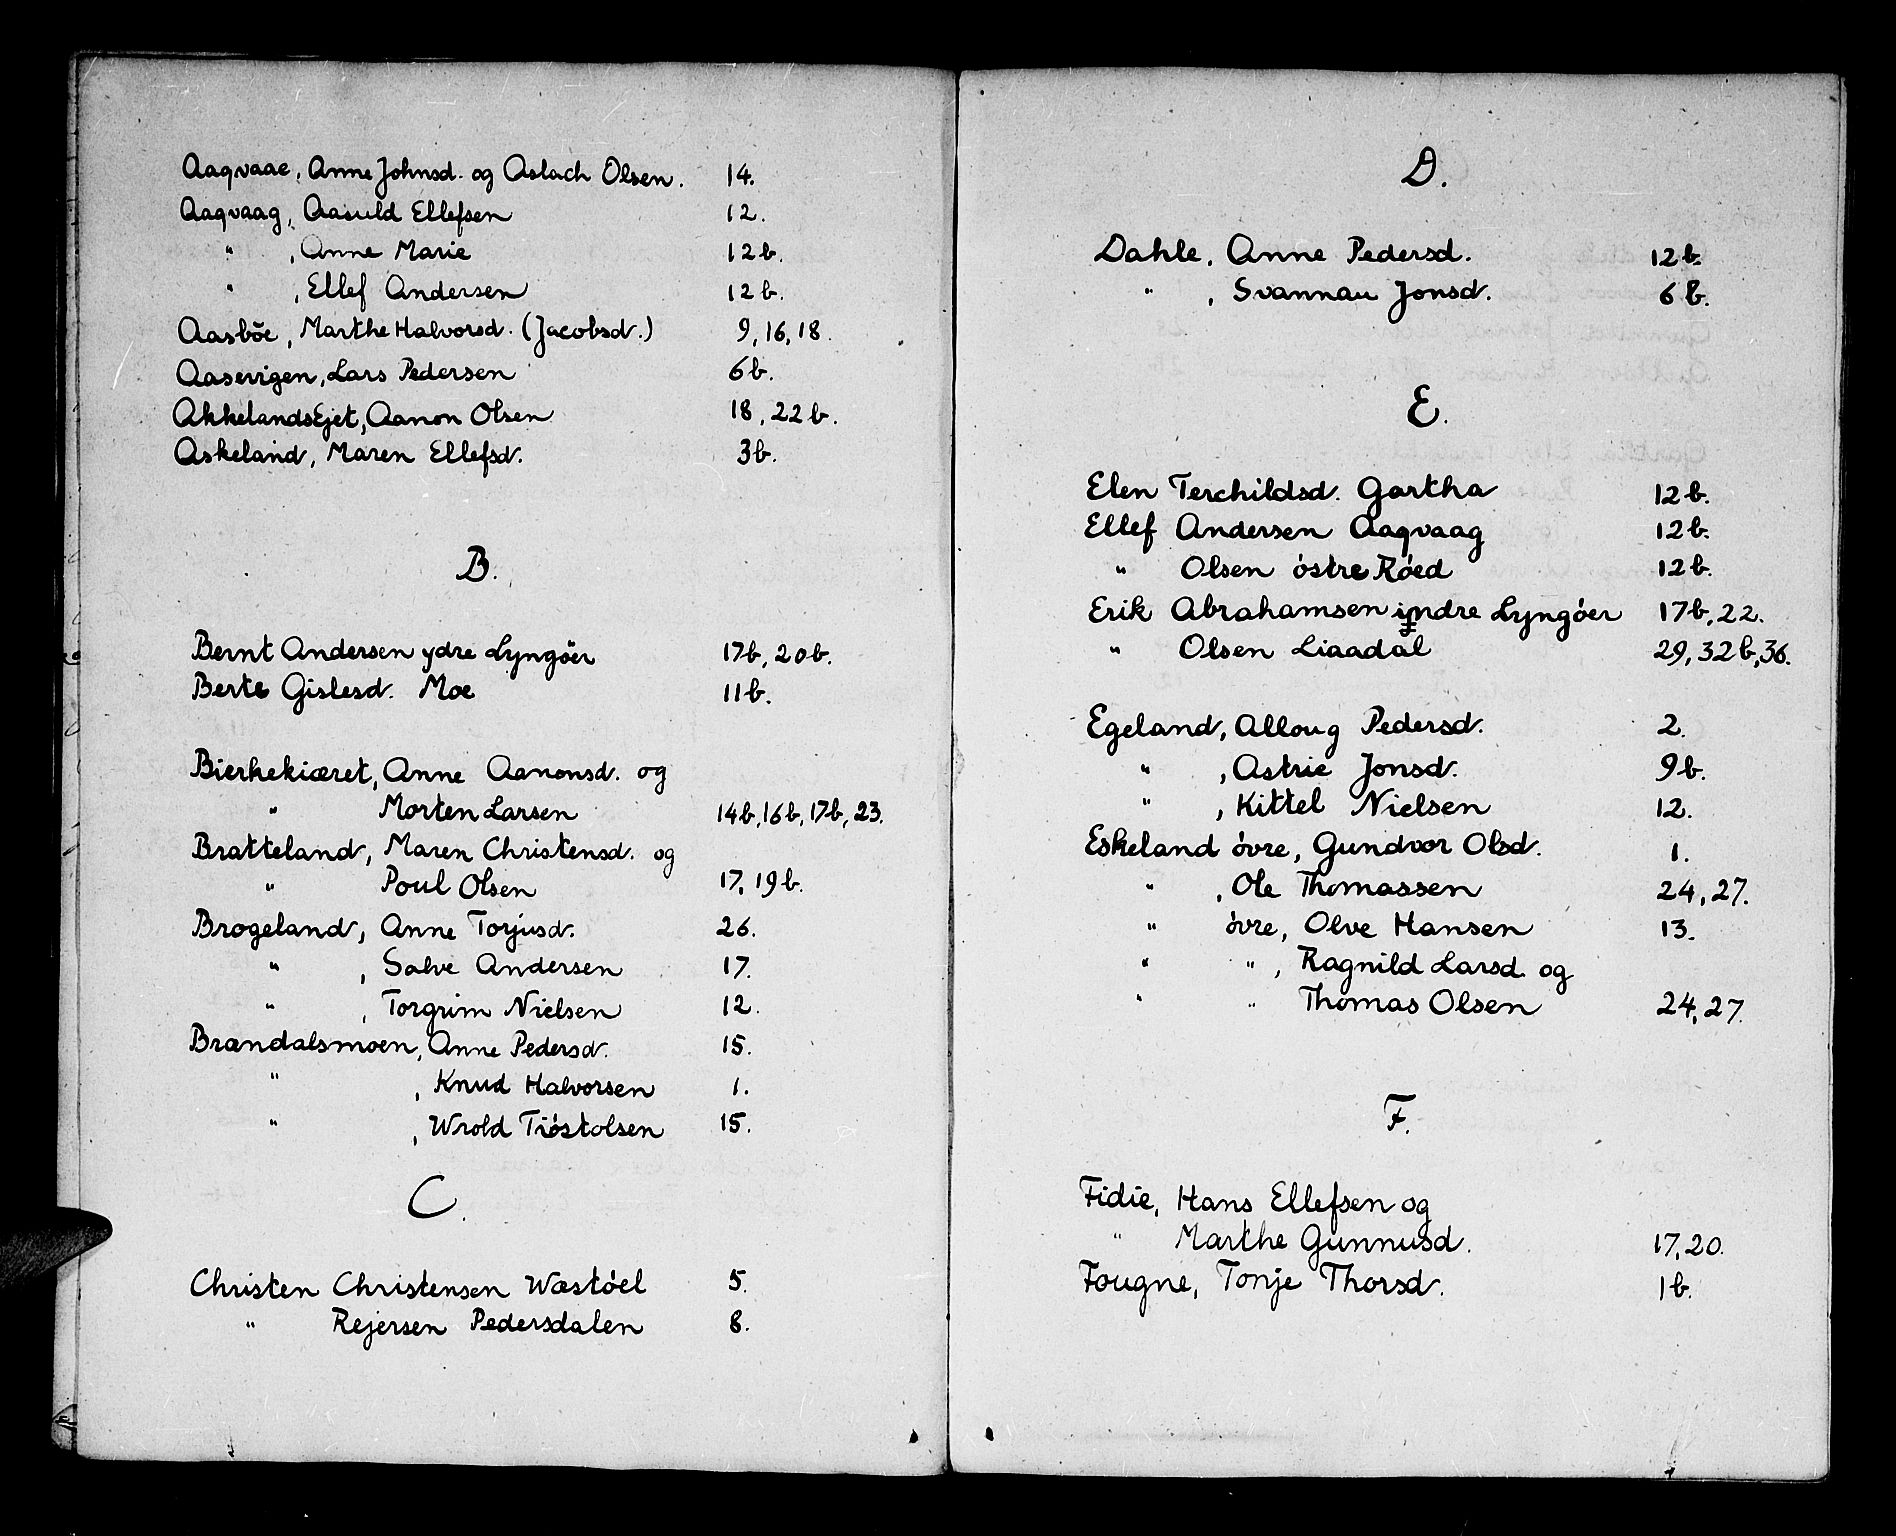 Aaqvaae, Anne Johnsd. og Aslach Olsen. 14.
Aaqvaag, Aasuld Ellefsen 12.
" , Anne Marie 12b.
" , Ellef Andersen 12b.
Aasböe, Marthe Halvorsd. (Jacobsd.) 9, 16, 18.
Aasevigen, Lars Pedersen 6b.
AkkelandsEjet, Aanon Olsen 18, 22b.
Askeland, Maren Ellefsd. 3b.
B.
Bernt Andersen ydre Lyngöer 17b, 20b.
Berte Gislesd. Moe 11b.
Bierkekiæret, Anne Aanonsd. og
" Morten Larsen 14b, 16b, 17b, 23.
Bratteland, Maren Christensd. og
" Poul Olsen 17, 19b.
Brogeland, Anne Torjusd. 26.
" , Salve Andersen 17.
" , Torgrim Nielsen 12.
Brændalsmoen, Anne Pedersd. 15.
" , Knud Halvorsen 1.
" , Wrold Tióstolsen 15.
C.
Christen Christensen Wæstóel 5.
" Rejersen Pedersdalen 8.
D.
Dahle, Anne Pedersd. 12b.
" , Svannau Jonsd. 6b.
E.
Elen Terchildsd. Gartha 12b.
Ellef Andersen Aaqvaag 12b.
" Olsen óstre Róed 12b.
Erik Abrahamsen indre Lyngóer 17b, 22.
" Olsen Liaadal 29, 32b, 36.
Egeland, Alloug Pedersd. 2.
" , Astrie Jonsd. 9b.
" , Kittel Nielsen 12.
Eskeland óvre, Gundvor Olsd. 1.
" , Ole Thomassen 24, 27.
" óvre, Olve Hansen 13.
" " , Ragnild Larsd. og
" " Thomas Olsen 24, 27.
F.
Fidie, Hans Ellefsen og
" Marthe Gunnusd. 17, 20.
Fougne, Tonje Thorsd. 1b.